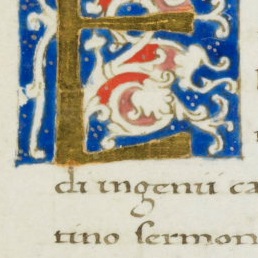 E
di ingenii ca
tino sermon